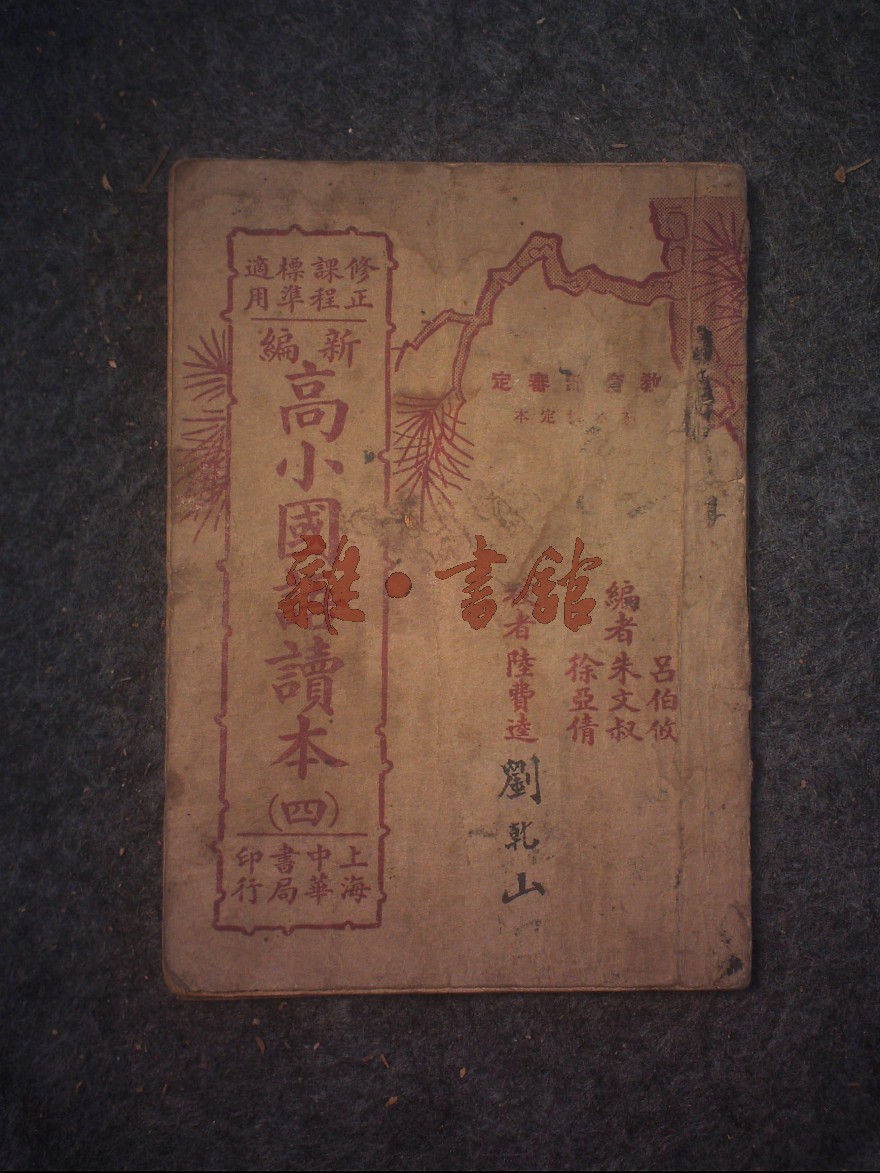 教育部審定
編者
呂伯攸
朱文叔
徐亞倩
者陸費逵
劉乾山
修正課程標準適用
新編
高小國語讀本
(四)
上海中華書局印行
雜·書館